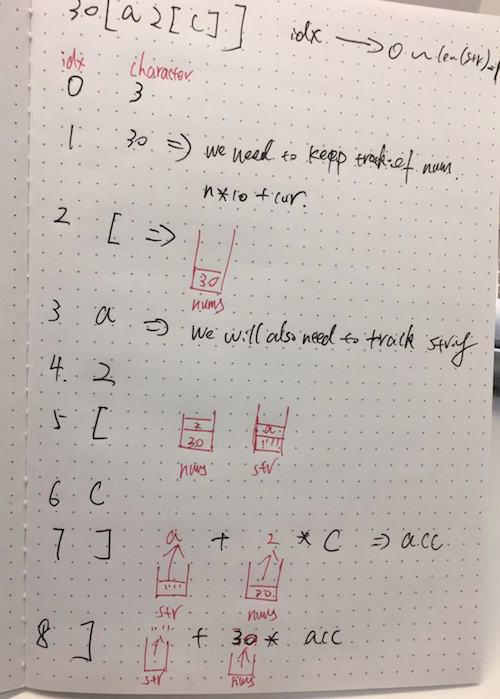 30[a2[c]] idx → 0 ~ len(str)-1
idx character
0 3
1 30 => we need to kepp track of num.
n*10 + cur.
2 [ =>
30
nums
3 a => we will also need to track string
4. 2
5 [
2 a
30 ""
nums str
6 C
7 ] a + 2 * C => acc
"" 30
str nums
8 ] "" + 30 * acc
str nums